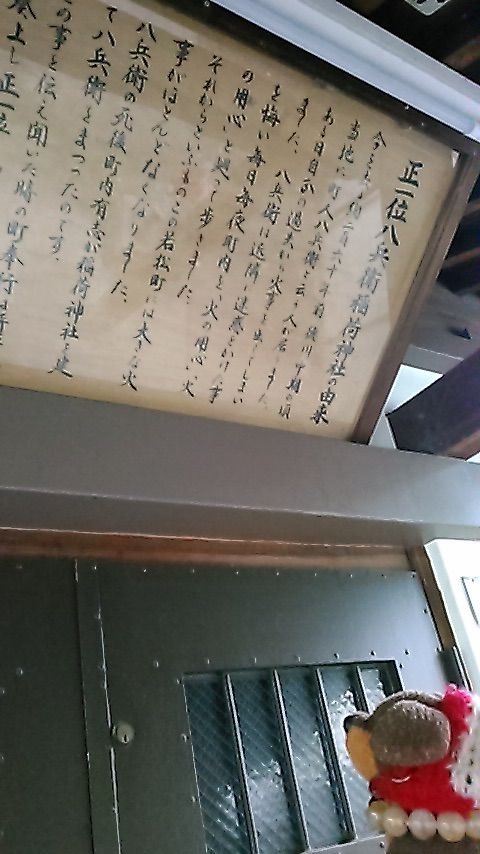 正一位八兵衛稲荷神社の由来
今をさる約二百六十年前 徳川中期の頃
当地に町人八兵衛と云う人が居りました。
ある日自分の過失から火事を出してしまい
ました。八兵衛は近隣に迷惑をかけた事
を悔い毎日毎夜町内を火の用心、火
の用心と廻って歩きました。
それからというものこの若松町には大きな火
事がほとんどなくなりました。
八兵衛の死後町内有志が稲荷神社を建
て八兵衛をまつったのです。
の事を伝え聞いた時の町奉行は
上し正一位